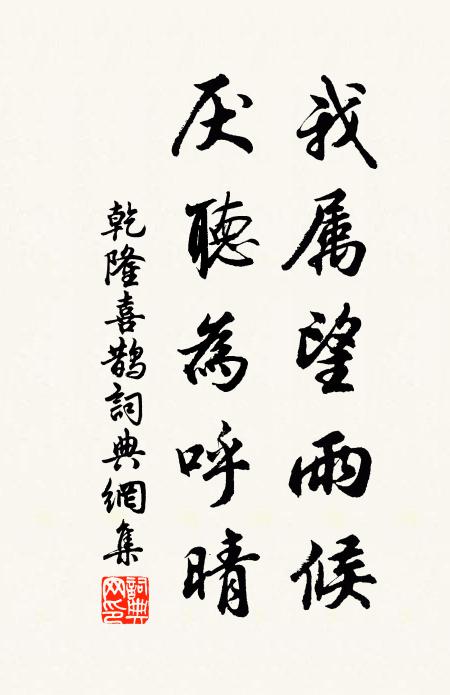 我属望雨候
厌聽為呼晴
乾隆喜鹊詞典網集
詞典网印